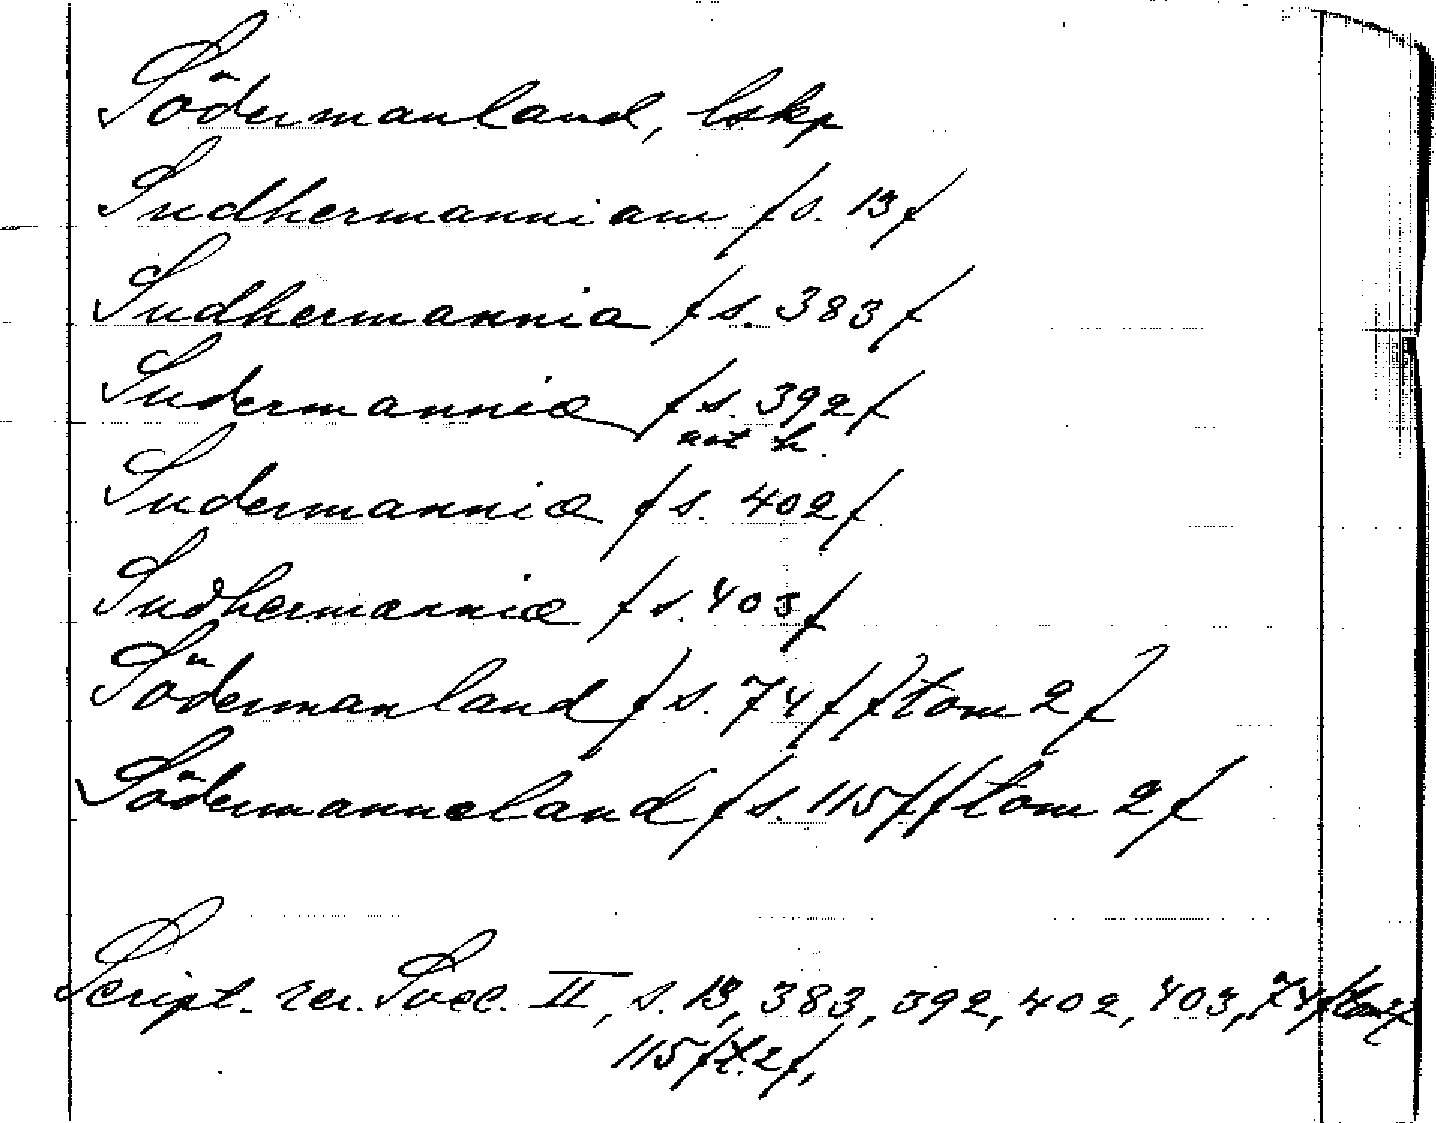 Södermanland, lskp
Sudhermanniam /s. 13/
Sudhermannia /s. 383/
Sudermanniæ /s. 392/
ant h.
Sudermanniæ /s. 402/
Sudhermanniæ /s. 403/
Södermanland /s. 74/ /tom 2/
Södermanneland /s. 115/ /tom 2/
Script. rer. Svec. II, s. 13, 383, 392, 402, 403, 74/tom 2/
115/t. 2/,